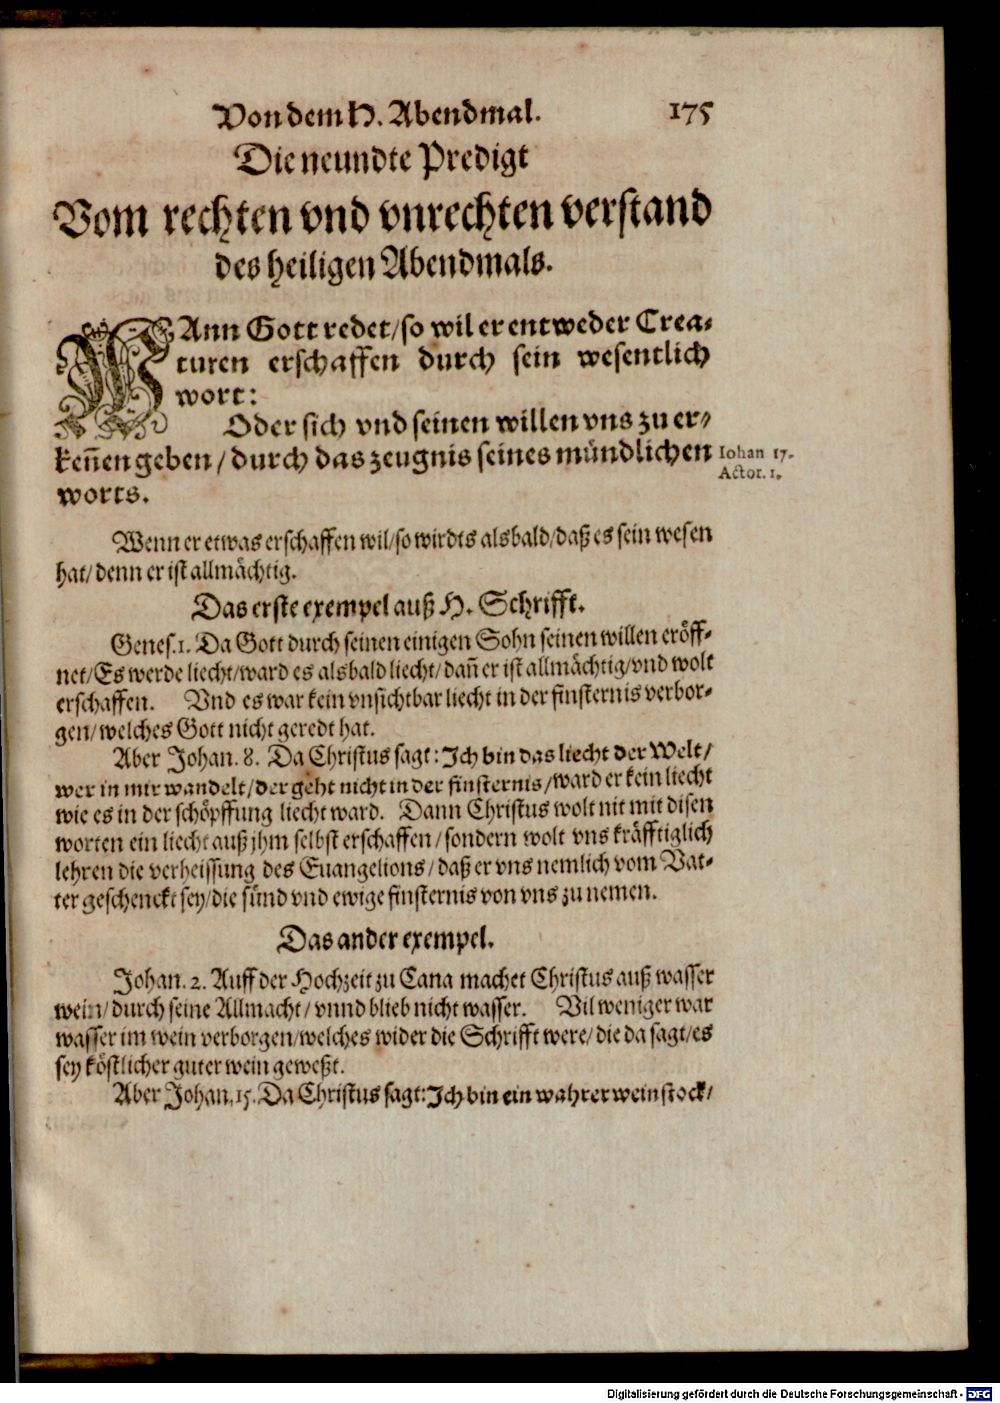 Von dem H. Abendmal. 175
Die neundte Predigt
Vom rechten vnd vnrechten verstand
des heiligen Abendmals.
WAnn Gott redet/so wil er entweder Crea-
turen erschaffen durch sein wesentlich
wort:
Oder sich vnd seinen willen vns zu er-
keñen geben/durch das zeugnis seines mündlichen
worts.
Iohan 17.
Actor. 1.
Wenn er etwas erschaffen wil/so wirdts alsbald/daß es sein wesen
hat/denn er ist allmächtig.
Das erste exempel auß H. Schrifft.
Genes.1. Da Gott durch seinen einigen Sohn seinen willen eröff-
net/Es werde liecht/ward es alsbald liecht/dañ er ist allmächtig/vnd wolt
erschaffen. Vnd es war kein vnsichtbar liecht in der finsternis verbor-
gen/welches Gott nicht geredt hat.
Aber Johan. 8. Da Christus sagt: Ich bin das liecht der Welt/
wer in mir wandelt/der geht nicht in der finsternis/ward er kein liecht
wie es in der schöpffung liecht ward. Dann Christus wolt nit mit disen
worten ein liecht auß jhm selbst erschaffen/sondern wolt vns kräfftiglich
lehren die verheissung des Euangelions/daß er vns nemlich vom Vat-
ter geschenckt sey/die sünd vnd ewige finsternis von vns zu nemen.
Das ander exempel.
Johan. 2. Auff der Hochzeit zu Cana machet Christus auß wasser
wein/durch seine Allmacht/vnnd blieb nicht wasser. Vil weniger war
wasser im wein verborgen/welches wider die Schrifft were/die da sagt/es
sey köstlicher guter wein geweßt.
Aber Johan. 15. Da Christus sagt: Ich bin ein wahrer weinstock/
Digitalisierung gefördert durch die Deutsche Forschungsgemeinschaft - DFG